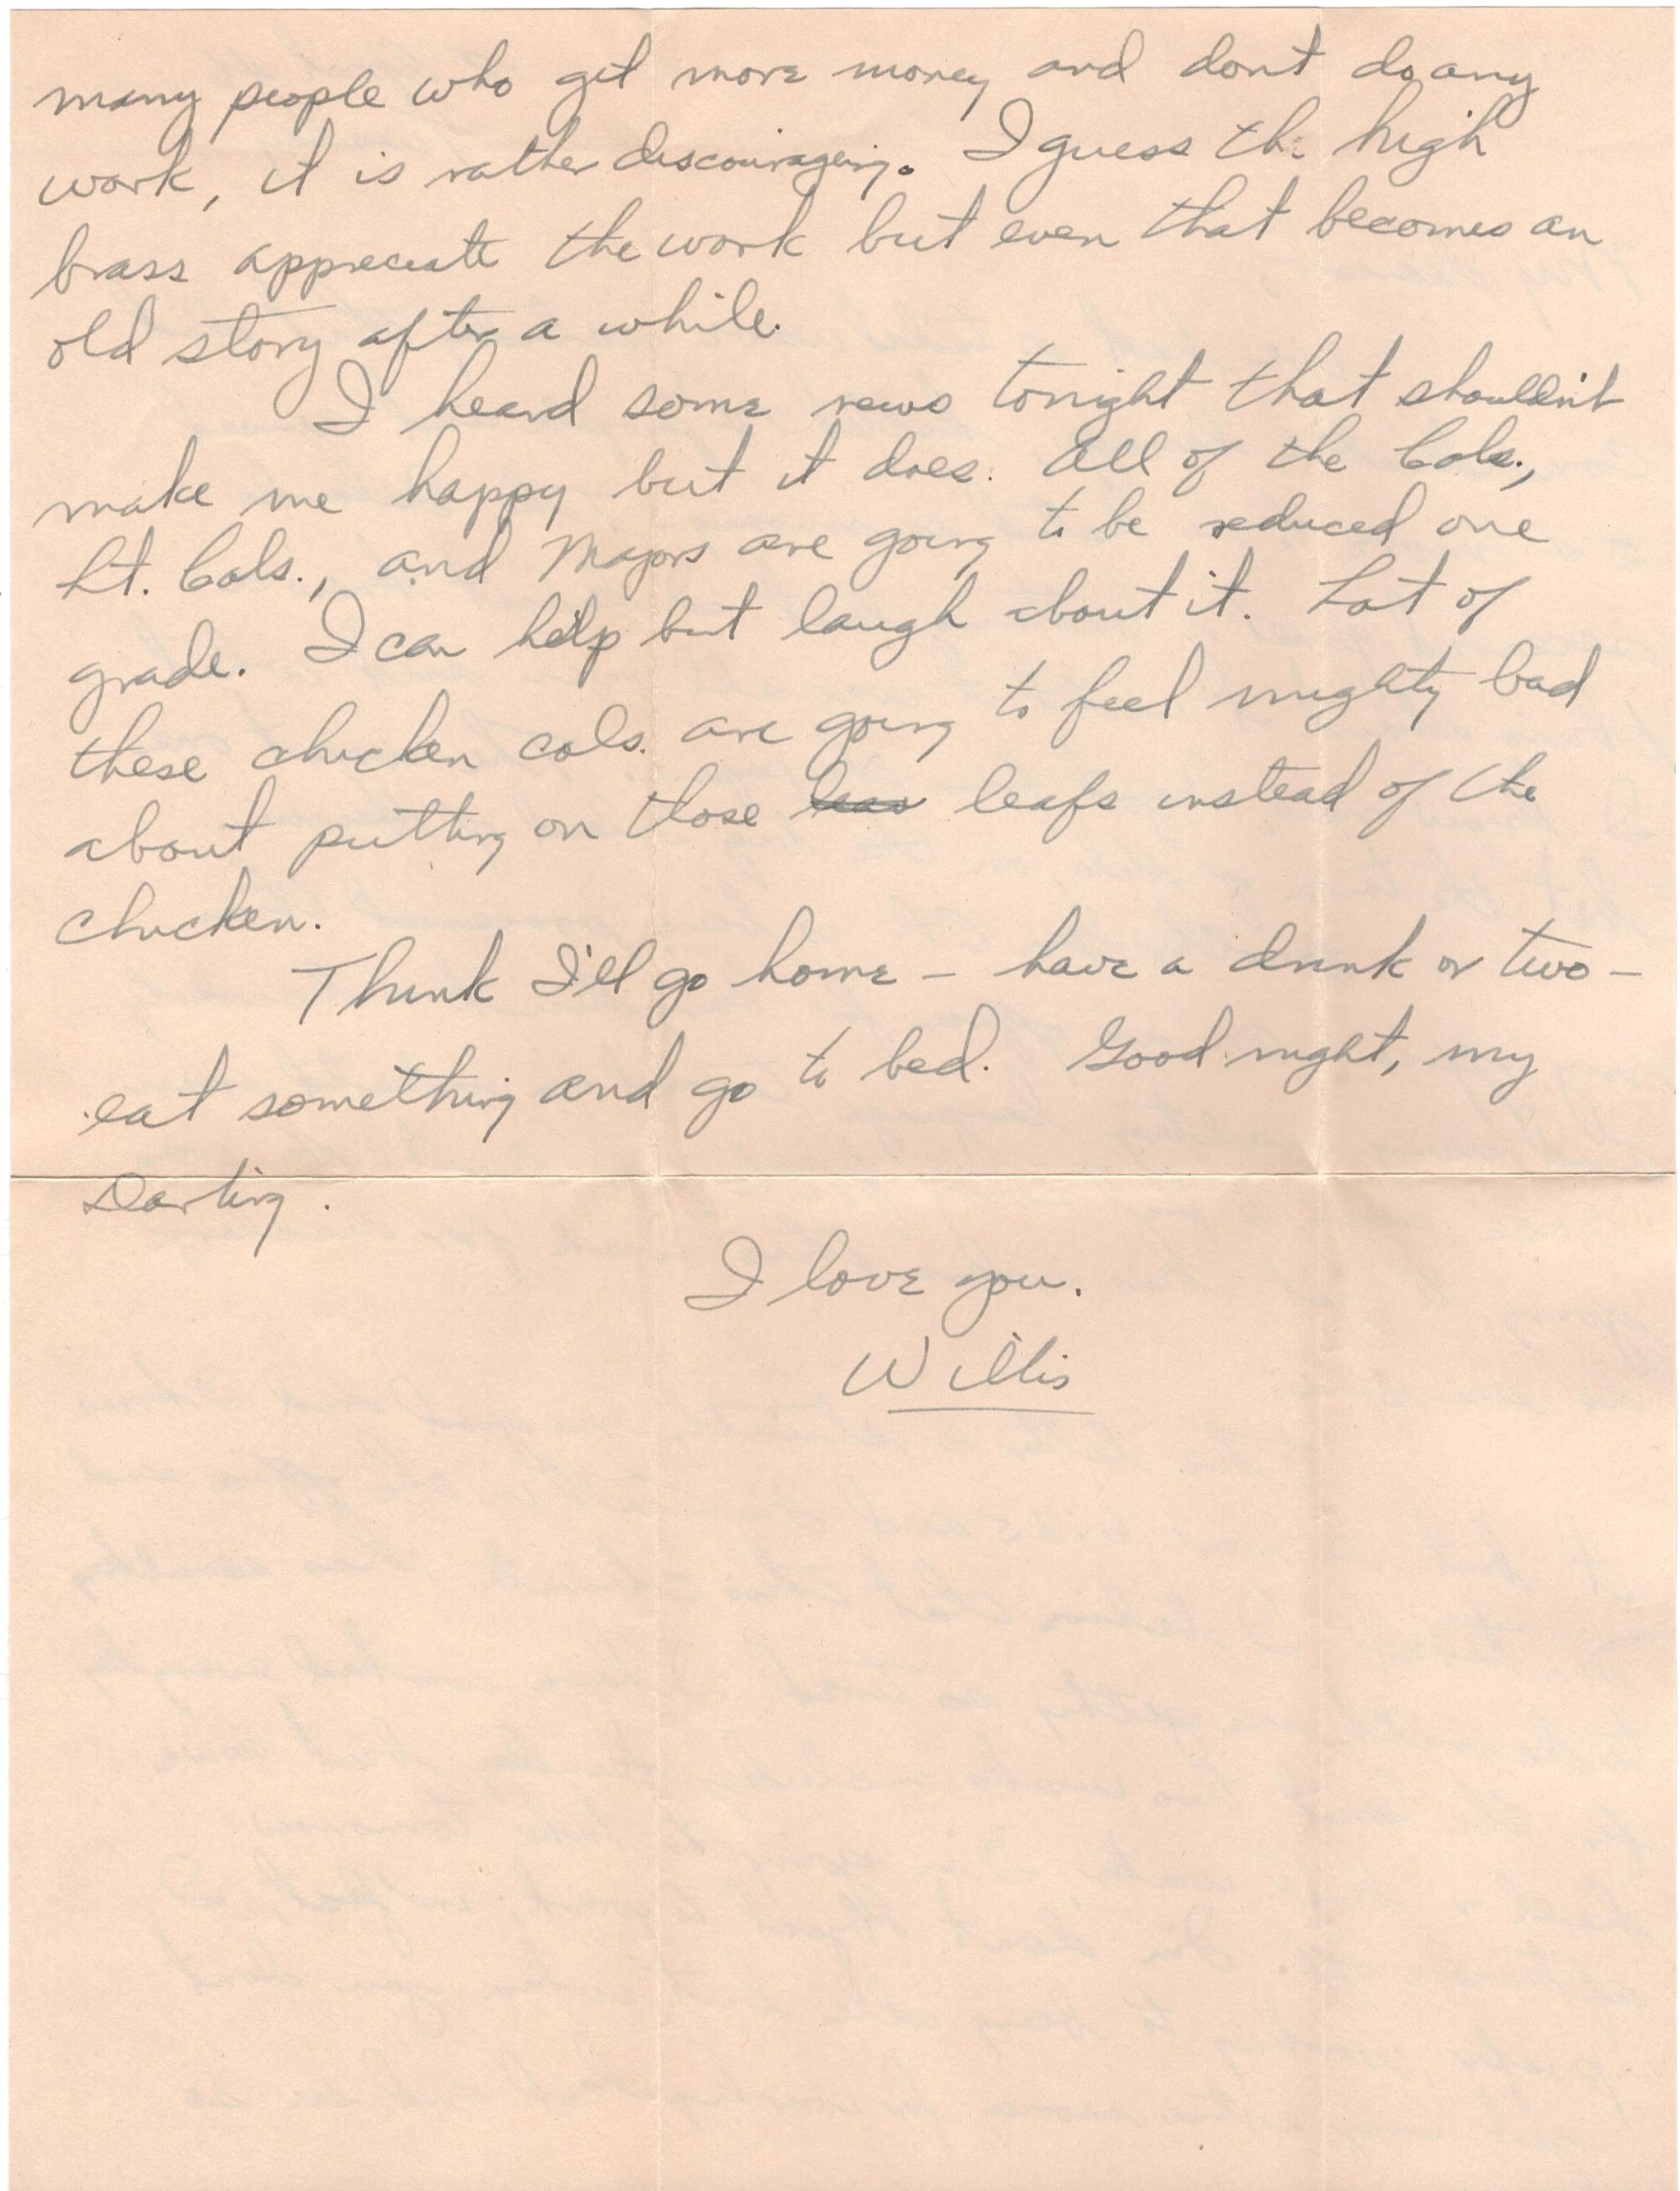 many people who get more money and dont do any
work, it is rather discourageing. I guess the high
brass appreciate the work but even that becomes an
old story after a while.
I heard some news tonight that shouldn't
make me happy but it does. All of the Cols.,
Lt. Cols., and Majors are going to be reduced one
grade. I can help but laugh about it. Lot of
these chicken cols. are going to feel mighty bad
about putting on those leafs instead of the
chicken.
Think I'll go home – have a drink or two –
eat something and go to bed. Good night, my
Darling.
I love you.
Willis